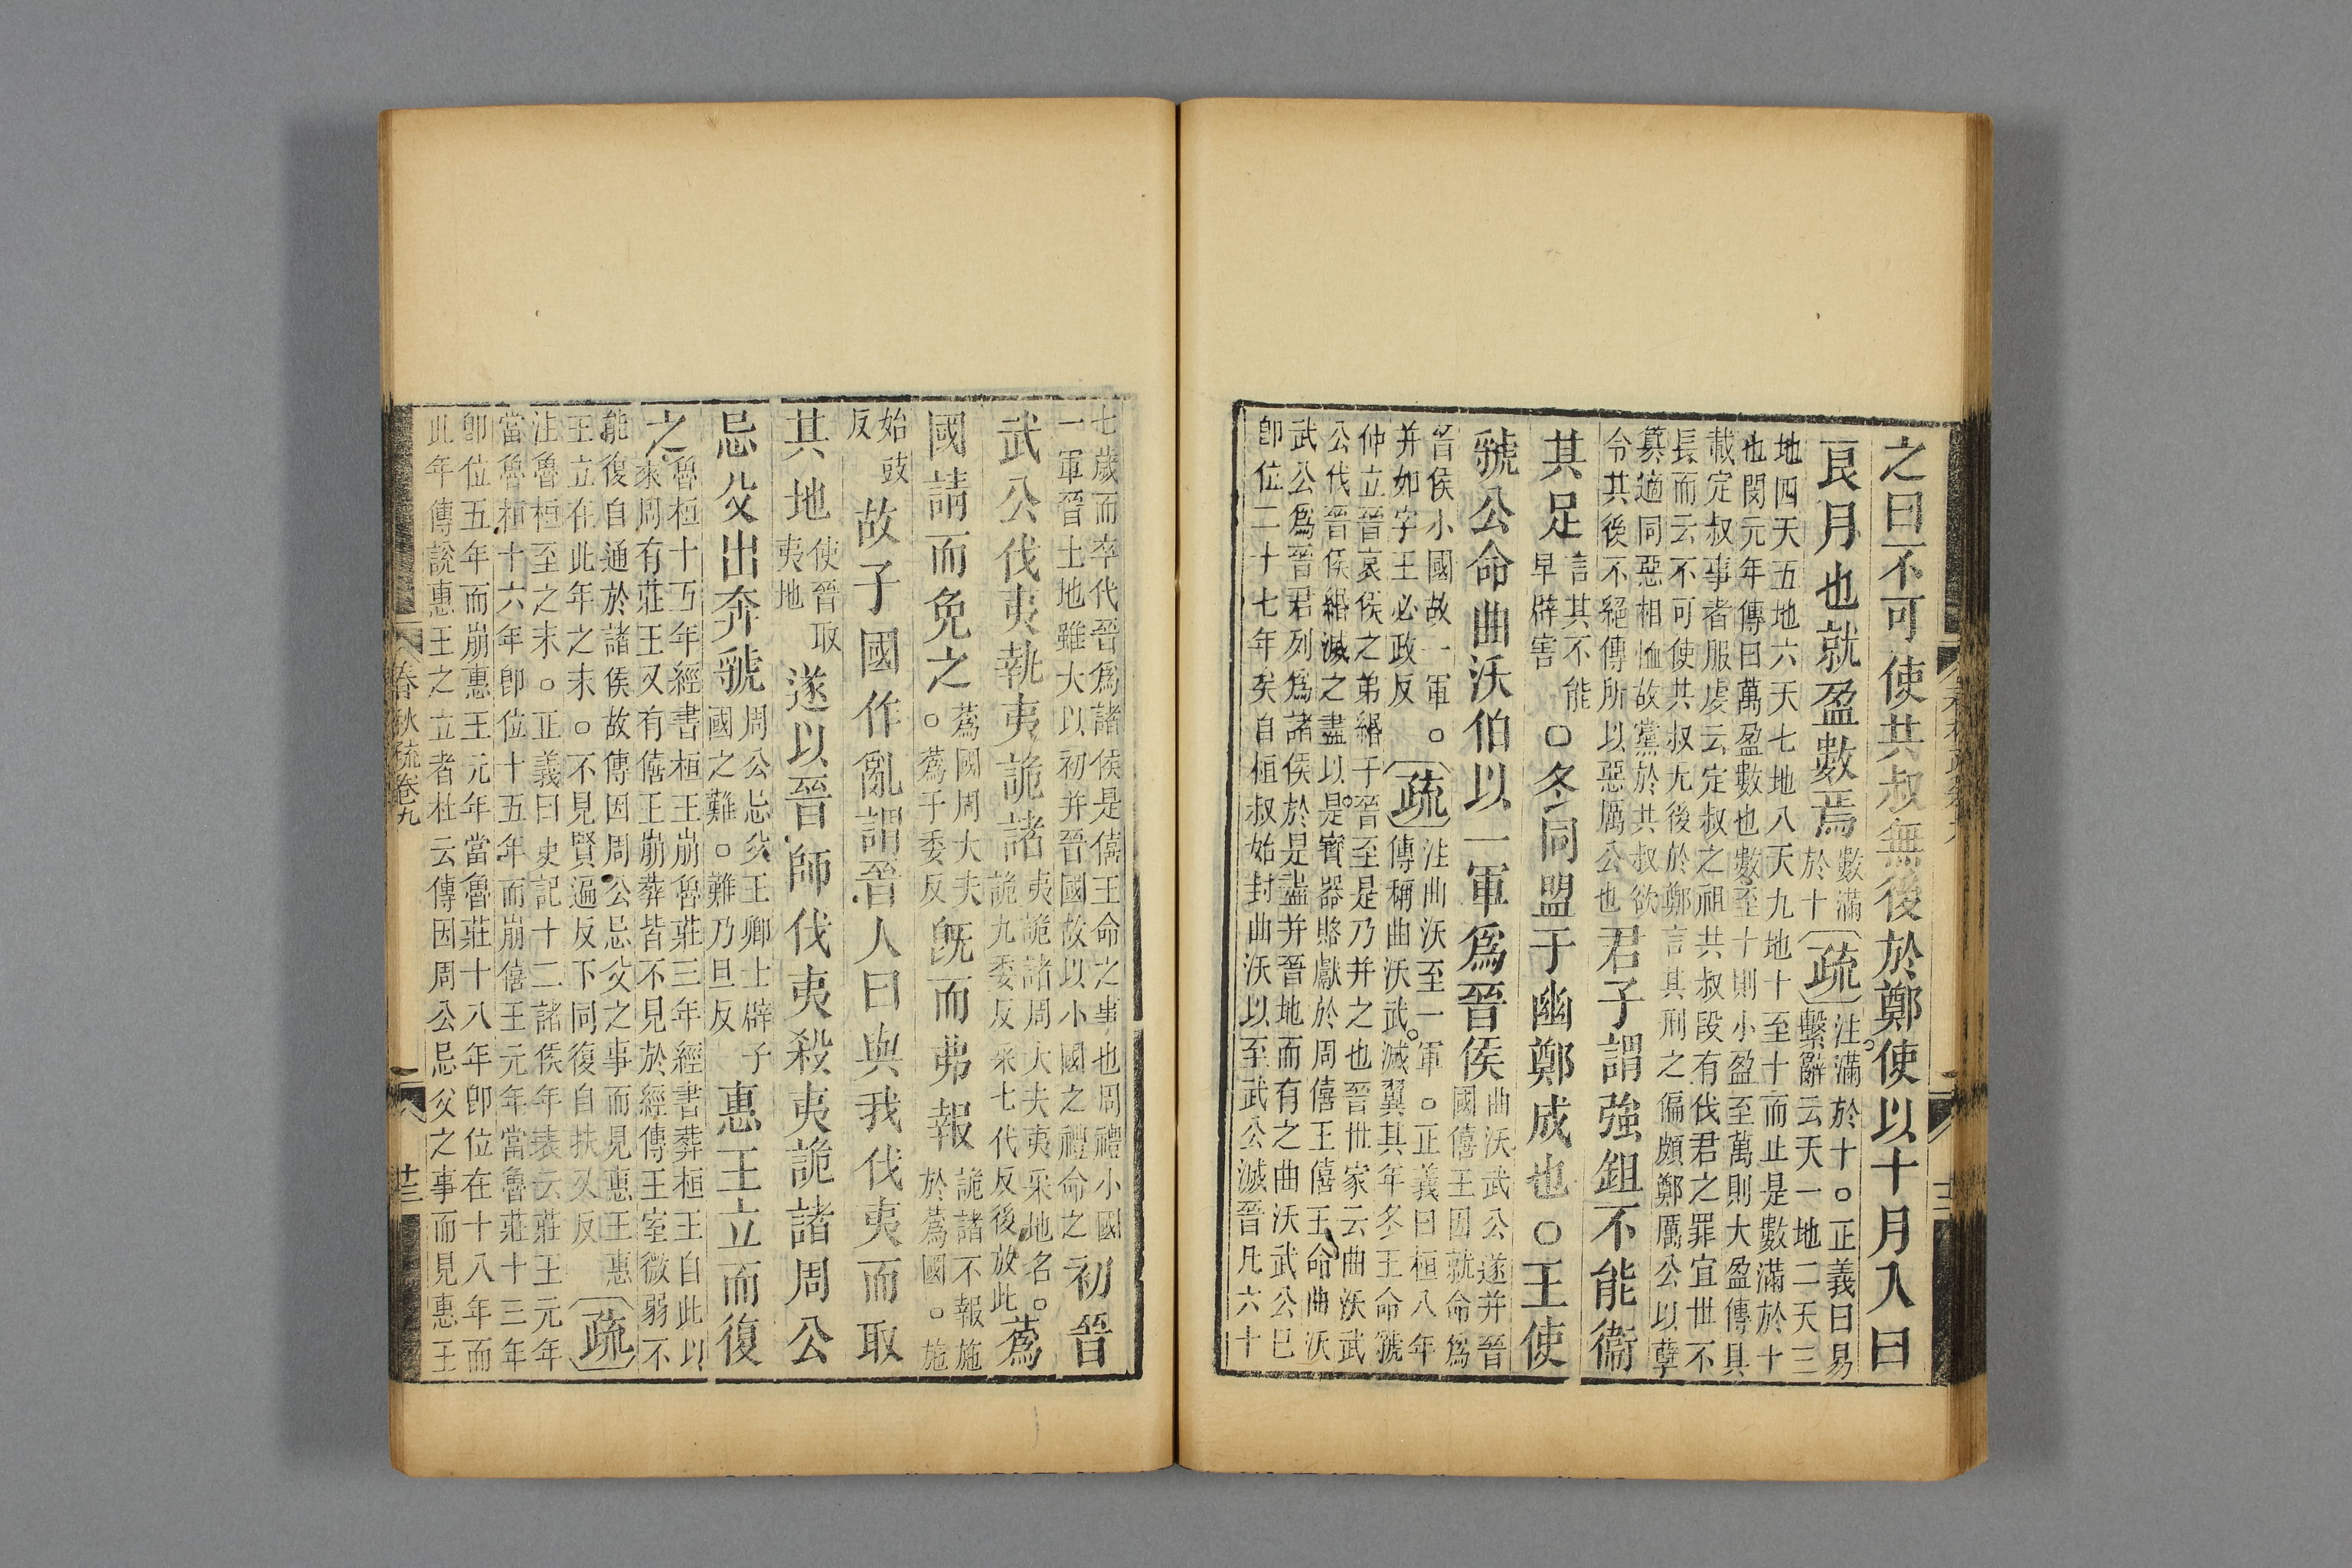 之曰不可使共叔無後於鄭使以十月入曰
良月也就盈數焉
數滿
於十
疏
注滿於十○正義曰易
繫辭云天一地二天三
地四天五地六天七地八天九地十至十而止是數滿於十
也閔元年傳曰萬盈數也數至十則小盈至萬則大盈傳具
載定叔事者服虔云定叔之祖共叔段有伐君之罪宜世不
長而云不可使共叔无後於鄭言其刑之偏頗鄭厲公以孽
篡適同惡相恤故黨於共叔欲
令其後不絕傳所以惡厲公也
君子謂強鉏不能衞
其足
言其不能
早辟害
○冬同盟于幽鄭成也○王使
虢公命曲沃伯以一軍爲晉侯
曲沃武公遂并晉
國僖王因就命爲
晉侯小國故一軍○
并如字王必政反
疏
注曲沃至一軍○正義曰桓八年
傳稱曲沃武滅翼其年冬王命虢
仲立晉哀侯之弟緡于晉至是乃并之也晉世家云曲沃武
公伐晉侯緡滅之盡以是寳器賂獻於周僖王僖王命曲沃
武公爲晉君列爲諸侯於是盡并晉地而有之曲沃武公已
卽位二十七年矣自桓叔始封曲沃以至武公滅晉凡六十
七歲而卒代晉爲諸侯是僖王命之事也周禮小國
一軍晉土地雖大以初并晉國故以小國之禮命之
初晉
武公伐夷執夷詭諸
夷詭諸周大夫夷采地名○
詭九委反采七代反後放此
蒍
國請而免之
蒍國周大夫
○蒍于委反
旣而弗報
詭諸不報施
於蒍國○施
始豉
反
故子國作亂謂晉人曰與我伐夷而取
其地
使晉取
夷地
遂以晉師伐夷殺夷詭諸周公
忌父出奔虢
周公忌父王卿士辟子
國之難○難乃旦反
惠王立而復
之
魯桓十五年經書桓王崩魯莊三年經書葬桓王自此以
來周有莊王又有僖王崩葬皆不見於經傳王室微弱不
能復自通於諸侯故傳因周公忌父之事而見惠王惠
王立在此年之末○不見賢遍反下同復自扶又反
疏
注魯桓至之末○正義曰史記十二諸侯年表云莊王元年
當魯桓十六年卽位十五年而崩僖王元年當魯莊十三年
卽位五年而崩惠王元年當魯莊十八年卽位在十八年而
此年傳說惠王之立者杜云傳因周公忌父之事而見惠王
春秋疏卷九
十三